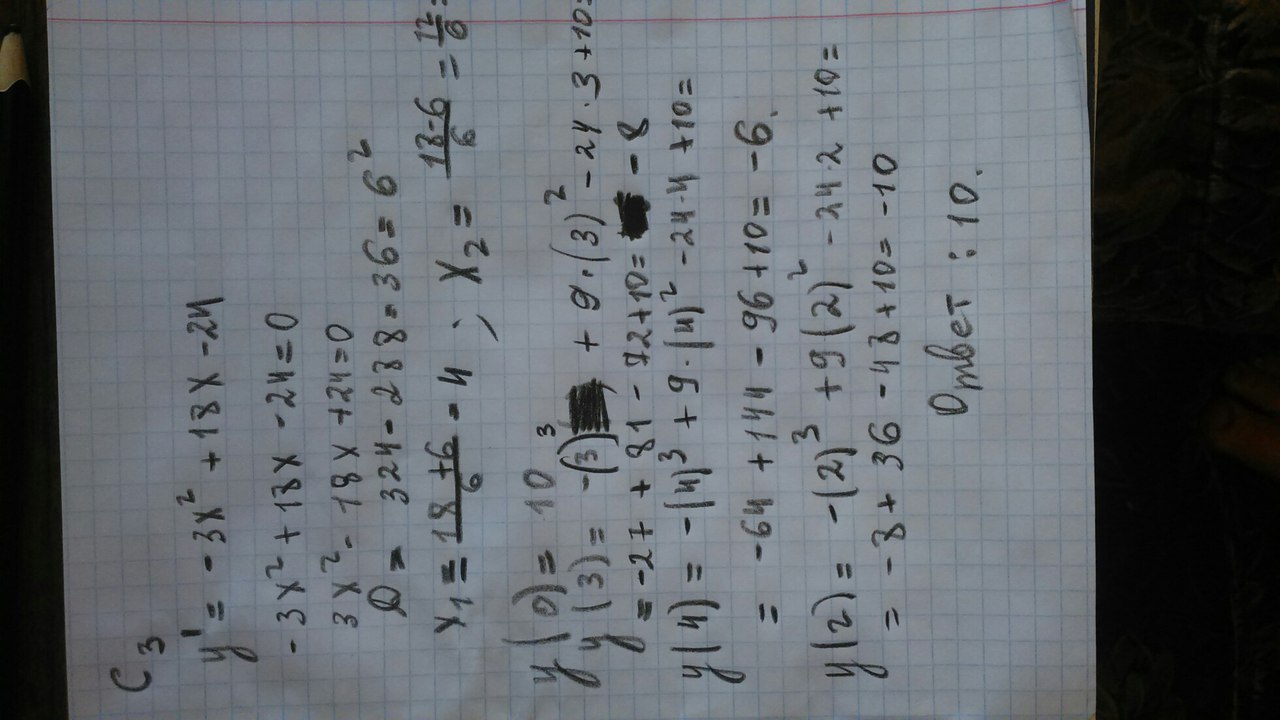 С3
y' = -3x² + 18x - 24
-3x² + 18x - 24 = 0
3x² - 18x + 24 = 0
D = 324 - 288 = 36 = 6²
x₁ = (18+6)/6 = 4 ; x₂ = (18-6)/6 = 12/6 =
y(0) = 10
y(3) = -(3)³ + 9·(3)² - 24·3 + 10 =
= -27 + 81 - 72 + 10 = -8
y(4) = -(4)³ + 9·(4)² - 24·4 + 10 =
= -64 + 144 - 96 + 10 = -6.
y(2) = -(2)³ + 9(2)² - 24·2 + 10 =
= -8 + 36 - 48 + 10 = -10
Ответ : 10.